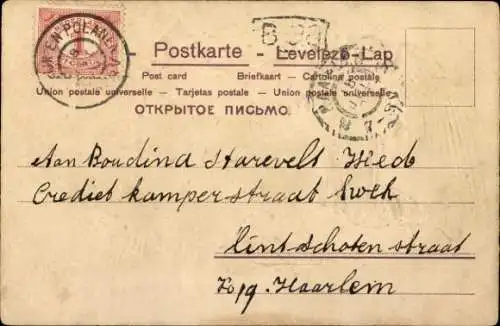 Postkarte - Levelező-Lap
Post card Briefkaart - Cartolina postale
Union postale universelle - Tarjetas postale - Union postale universelle
ОТКРЫТОЕ ПИСЬМО.
Aan Boudina Starevelt Wied
Crediet kamperstraat hoek
Lintschoten straat
No 9. Haarlem